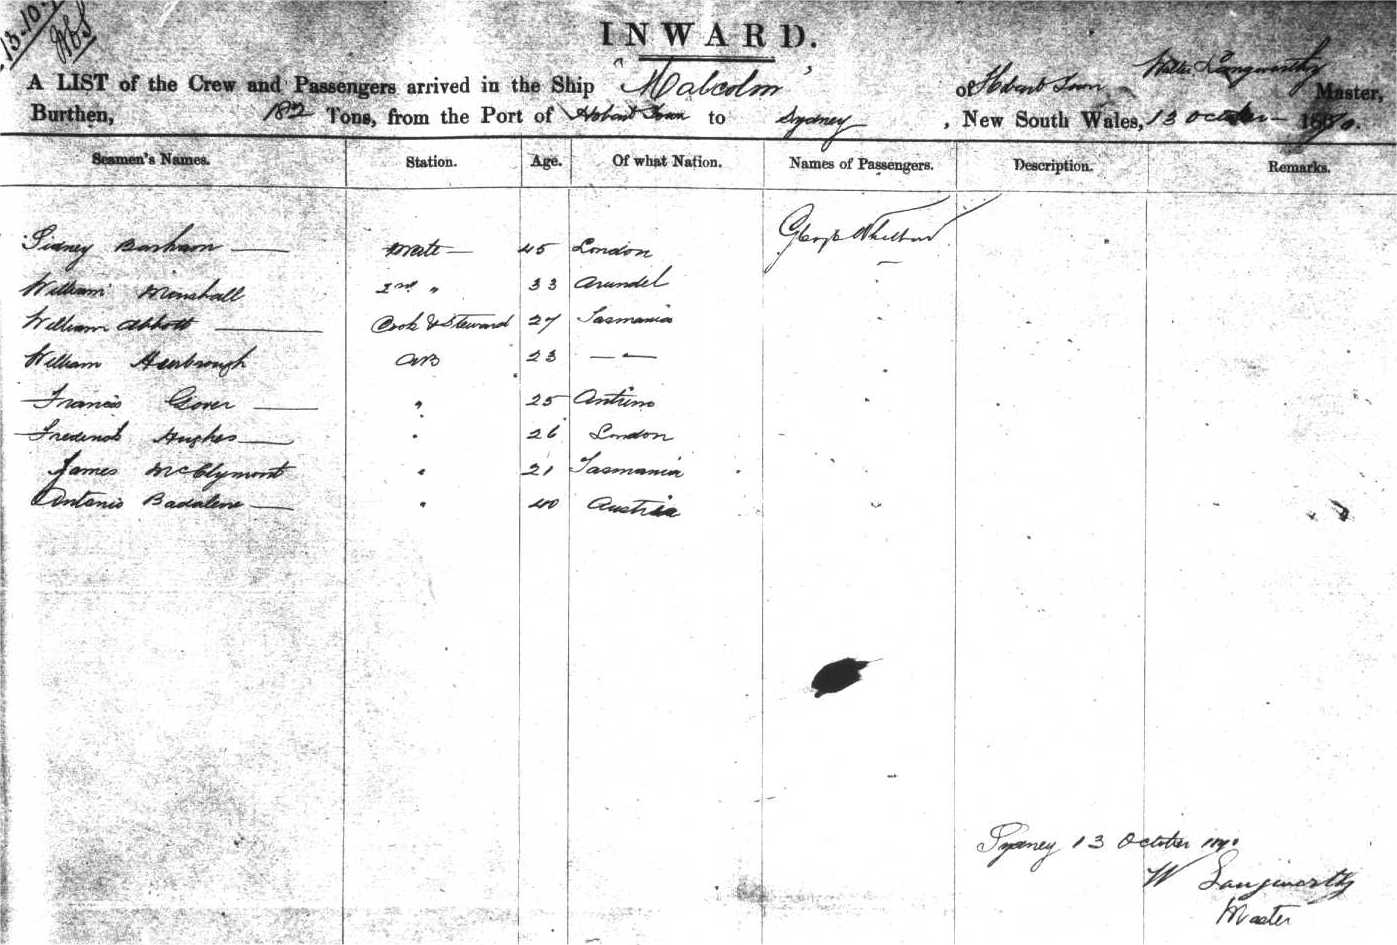 13.10.
INWARD.
A LIST of the Crew and Passengers arrived in the Ship "Malcolm" of Hobart Town Walter Langworthy Master,
Burthen, 182 Tons, from the Port of Hobart Town to Sydney, New South Wales, 13 October 1870.
Seamen's Names. Station. Age. Of what Nation. Names of Passengers. Description. Remarks.
Sidney Barham — Mate — 45 London George
William Marshall 2nd " 33 Arundel
William Abbott — Cook & Steward 27 Tasmania
William AB 23 — " —
Francis Gover — " 25 Antrim
Frederick Hughes — " 26 London
James McClymont " 21 Tasmania
Antonio Badalene — " 40 Austria
Sydney 13 October 1870
W Langworthy
Master